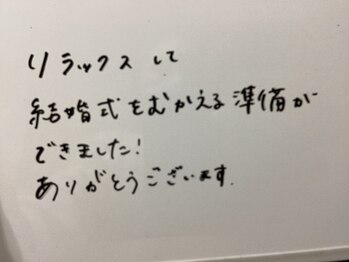 リラックスして
結婚式をむかえる準備が
できました!
ありがとうございます.